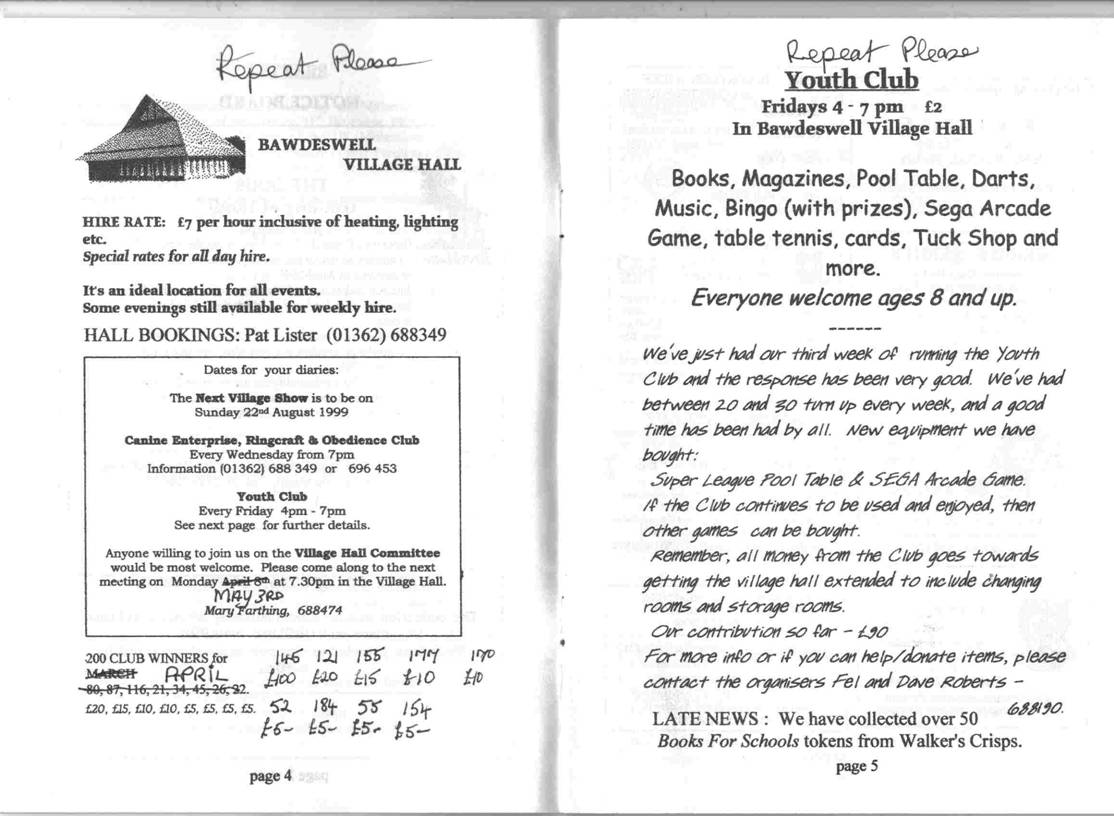 Repeat Please
BAWDESWELL
VILLAGE HALL
HIRE RATE: £7 per hour inclusive of heating, lighting
etc.
Special rates for all day hire.
It's an ideal location for all events.
Some evenings still available for weekly hire.
HALL BOOKINGS: Pat Lister (01362) 688349
Dates for your diaries:
The Next Village Show is to be on
Sunday 22nd August 1999
Canine Enterprise, Ringcraft & Obedience Club
Every Wednesday from 7pm
Information (01362) 688 349 or 696 453
Youth Club
Every Friday 4pm - 7pm
See next page for further details.
Anyone willing to join us on the Village Hall Committee
would be most welcome. Please come along to the next
meeting on Monday April 8th at 7.30pm in the Village Hall.
MAY 3RD
Mary Farthing, 688474
200 CLUB WINNERS for 146 121 155 177 170
MARCH APRIL £100 £20 £15 £10 £10
80, 87, 116, 21, 34, 45, 26, 92.
£20, £15, £10, £10, £5, £5, £5, £5. 52 184 55 154
£5- £5- £5- £5-
page 4
Repeat Please
Youth Club
Fridays 4 - 7 pm £2
In Bawdeswell Village Hall
Books, Magazines, Pool Table, Darts,
Music, Bingo (with prizes), Sega Arcade
Game, table tennis, cards, Tuck Shop and
more.
Everyone welcome ages 8 and up.
------
We've just had our third week of running the Youth
Club and the response has been very good. We've had
between 20 and 30 turn up every week, and a good
time has been had by all. New equipment we have
bought:
Super League Pool Table & SEGA Arcade Game.
If the Club continues to be used and enjoyed, then
other games can be bought.
Remember, all money from the Club goes towards
getting the village hall extended to include changing
rooms and storage rooms.
Our contribution so far - £90
For more info or if you can help/donate items, please
contact the organisers Fel and Dave Roberts -
688190.
LATE NEWS : We have collected over 50
Books For Schools tokens from Walker's Crisps.
page 5